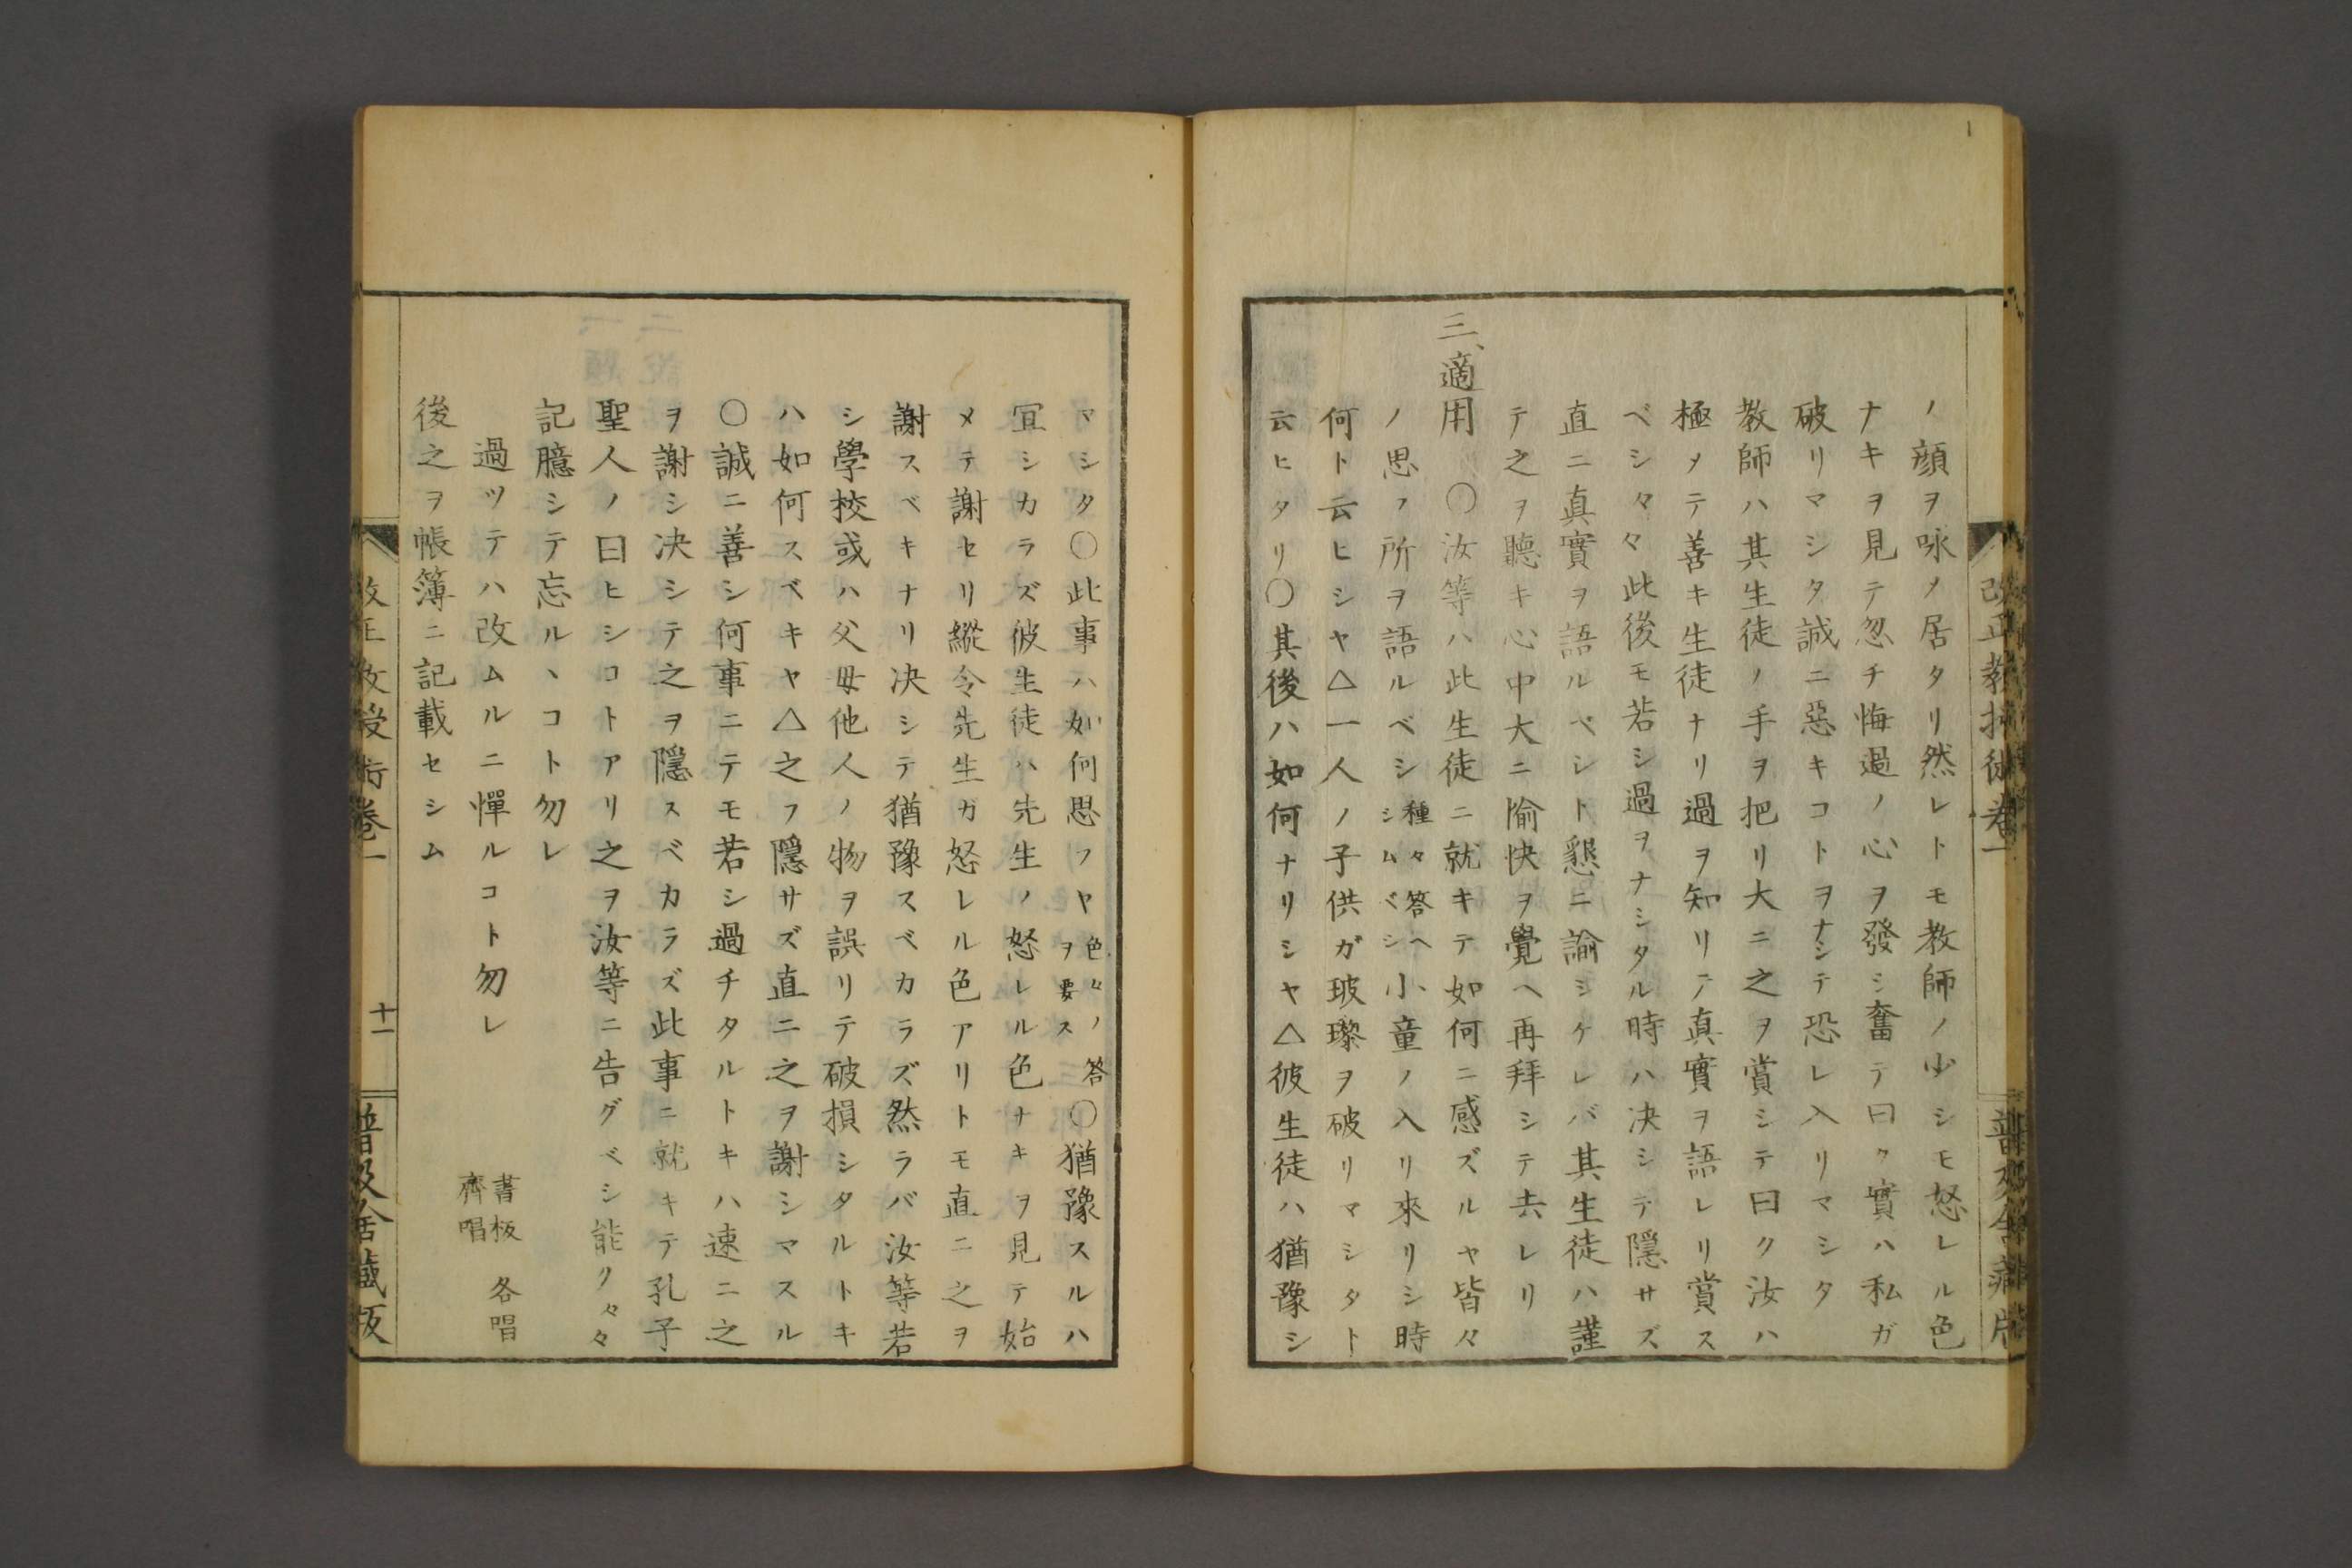 改正教授術卷一
普及舍藏版
ノ顔ヲ咏メ居タリ然レトモ教師ノ少シモ怒レル色
ナキヲ見テ忽チ悔過ノ心ヲ發シ奮テ曰ク實ハ私ガ
破リマシタ誠ニ惡キコトヲナシテ恐レ入リマシタ
教師ハ其生徒ノ手ヲ把リ大ニ之ヲ賞シテ曰ク汝ハ
極メテ善キ生徒ナリ過ヲ知リテ真實ヲ語レリ賞ス
ベシ々々此後モ若シ過ヲナシタル時ハ决シテ隱サズ
直ニ真實ヲ語ルベシト懇ニ諭シケレバ其生徒ハ謹
テ之ヲ聽キ心中大ニ愉快ヲ覺ヘ再拜シテ去レリ
三、適用 〇汝等ハ此生徒ニ就キテ如何ニ感ズルヤ皆々
ノ思フ所ヲ語ルベシ種々答ヘシムベシ小童ノ入リ來リシ時
何ト云ヒシヤ△一人ノ子供ガ玻瓈ヲ破リマシタト
云ヒタリ〇其後ハ如何ナリシヤ△彼生徒ハ猶豫シ
マシタ〇此事ハ如何思フヤ色々ノ答ヲ要ス〇猶豫スルハ
冝シカラズ彼生徒ハ先生ノ怒レル色ナキヲ見テ始
メテ謝セリ縱令先生ガ怒レル色アリトモ直ニ之ヲ
謝スベキナリ决シテ猶豫スベカラズ然ラバ汝等若
シ學校或ハ父母他人ノ物ヲ誤リテ破損シタルトキ
ハ如何スベキヤ△之ヲ隱サズ直ニ之ヲ謝シマスル
〇誠ニ善シ何事ニテモ若シ過チタルトキハ速ニ之
ヲ謝シ决シテ之ヲ隱スベカラズ此事ニ就キテ孔子
聖人ノ曰ヒシコトアリ之ヲ汝等ニ告グベシ能ク々々
記臆シテ忘ルヽコト勿レ
過ツテハ改ムルニ憚ルコト勿レ 書板 各唱
齊唱
後之ヲ帳簿ニ記載セシム
改正教授術卷一
十一
普及舍藏版